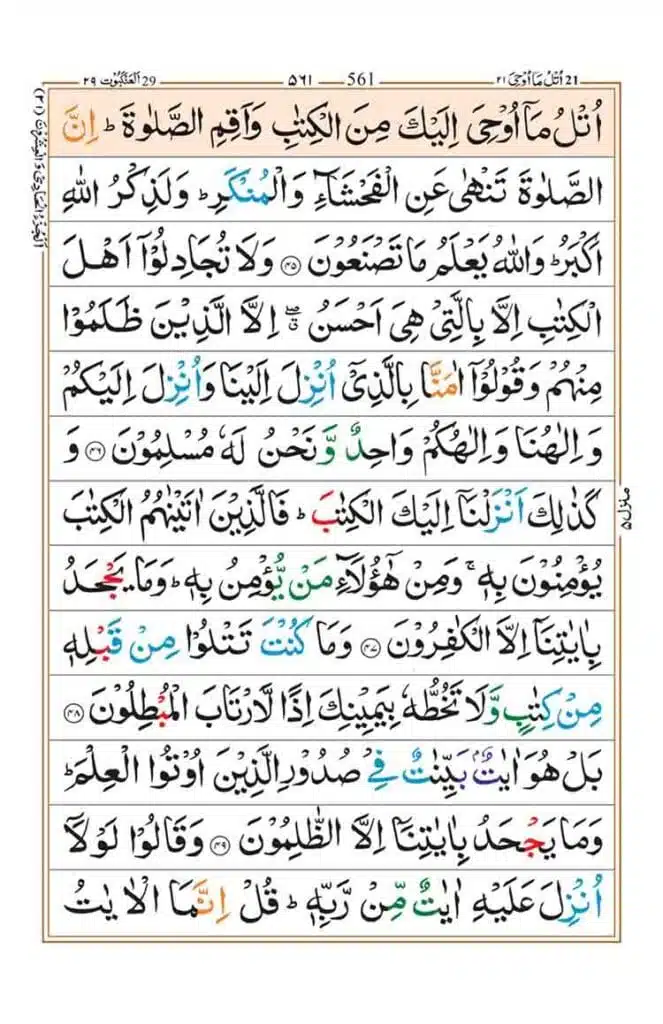 29 اَلْعَنْكَبُوْت ٢٩ — ٥٦١ — 561 — 21 اُتْلُ مَاۤ اُوْحِیَ ٢١
اُتْلُ مَاۤ اُوْحِیَ اِلَیْكَ مِنَ الْكِتٰبِ وَاَقِمِ الصَّلٰوةَ ؕ اِنَّ
الصَّلٰوةَ تَنْهٰی عَنِ الْفَحْشَآءِ وَالْمُنْكَرِ ؕ وَلَذِكْرُ اللّٰهِ
اَكْبَرُ ؕ وَاللّٰهُ یَعْلَمُ مَا تَصْنَعُوْنَ ﴿۴۵﴾ وَلَا تُجَادِلُوْۤا اَهْلَ
الْكِتٰبِ اِلَّا بِالَّتِیْ هِیَ اَحْسَنُ ۖۗ اِلَّا الَّذِیْنَ ظَلَمُوْا
مِنْهُمْ وَقُوْلُوْۤا اٰمَنَّا بِالَّذِیْۤ اُنْزِلَ اِلَیْنَا وَاُنْزِلَ اِلَیْكُمْ
وَ اِلٰهُنَا وَاِلٰهُكُمْ وَاحِدٌ وَّ نَحْنُ لَهٗ مُسْلِمُوْنَ ﴿۴۶﴾ وَ
كَذٰلِكَ اَنْزَلْنَاۤ اِلَیْكَ الْكِتٰبَ ؕ فَالَّذِیْنَ اٰتَیْنٰهُمُ الْكِتٰبَ
یُؤْمِنُوْنَ بِهٖ ۚ وَمِنْ هٰۤؤُلَآءِ مَنْ یُّؤْمِنُ بِهٖ ؕ وَمَا یَجْحَدُ
بِاٰیٰتِنَاۤ اِلَّا الْكٰفِرُوْنَ ﴿۴۷﴾ وَمَا كُنْتَ تَتْلُوْا مِنْ قَبْلِهٖ
مِنْ كِتٰبٍ وَّلَا تَخُطُّهٗ بِیَمِیْنِكَ اِذًا لَّارْتَابَ الْمُبْطِلُوْنَ ﴿۴۸﴾
بَلْ هُوَ اٰیٰتٌۢ بَیِّنٰتٌ فِیْ صُدُوْرِ الَّذِیْنَ اُوْتُوا الْعِلْمَ ؕ
وَمَا یَجْحَدُ بِاٰیٰتِنَاۤ اِلَّا الظّٰلِمُوْنَ ﴿۴۹﴾ وَقَالُوْا لَوْلَاۤ
اُنْزِلَ عَلَیْهِ اٰیٰتٌ مِّنْ رَّبِّهٖ ؕ قُلْ اِنَّمَا الْاٰیٰتُ
اَلْجُزْءُ الْحَادِیْ وَالْعِشْرُوْنَ (٢١)
منزل ۵